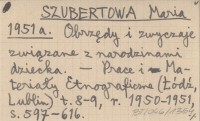 SZUBERTOWA Maria
1951a. Obrzędy i zwyczaje
związane z narodzinami
dziecka. — Prace i Ma-
teriały Etnograficzne (Łódź,
Lublin) t. 8-9, r. 1950-1951,
s. 597-616.